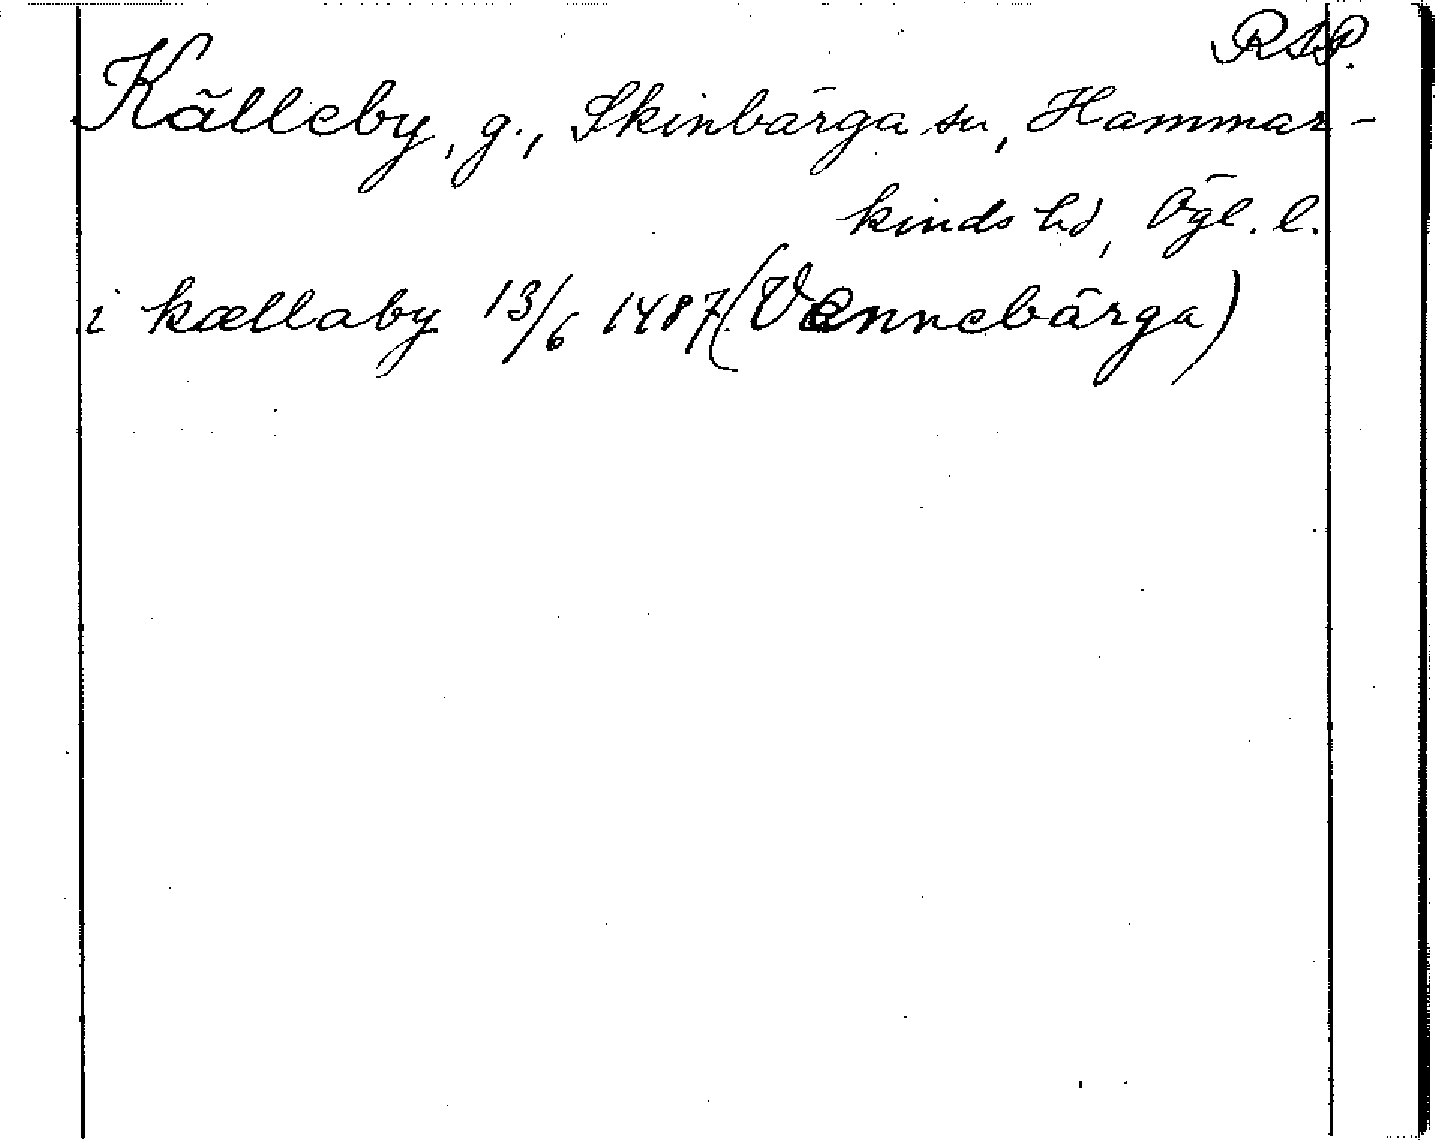 RAP.
Källeby, g., Skinbärga sn, Hammar-
kinds hd, Ögl. l.
i kællaby 13/6 1487 (Vennebärga)